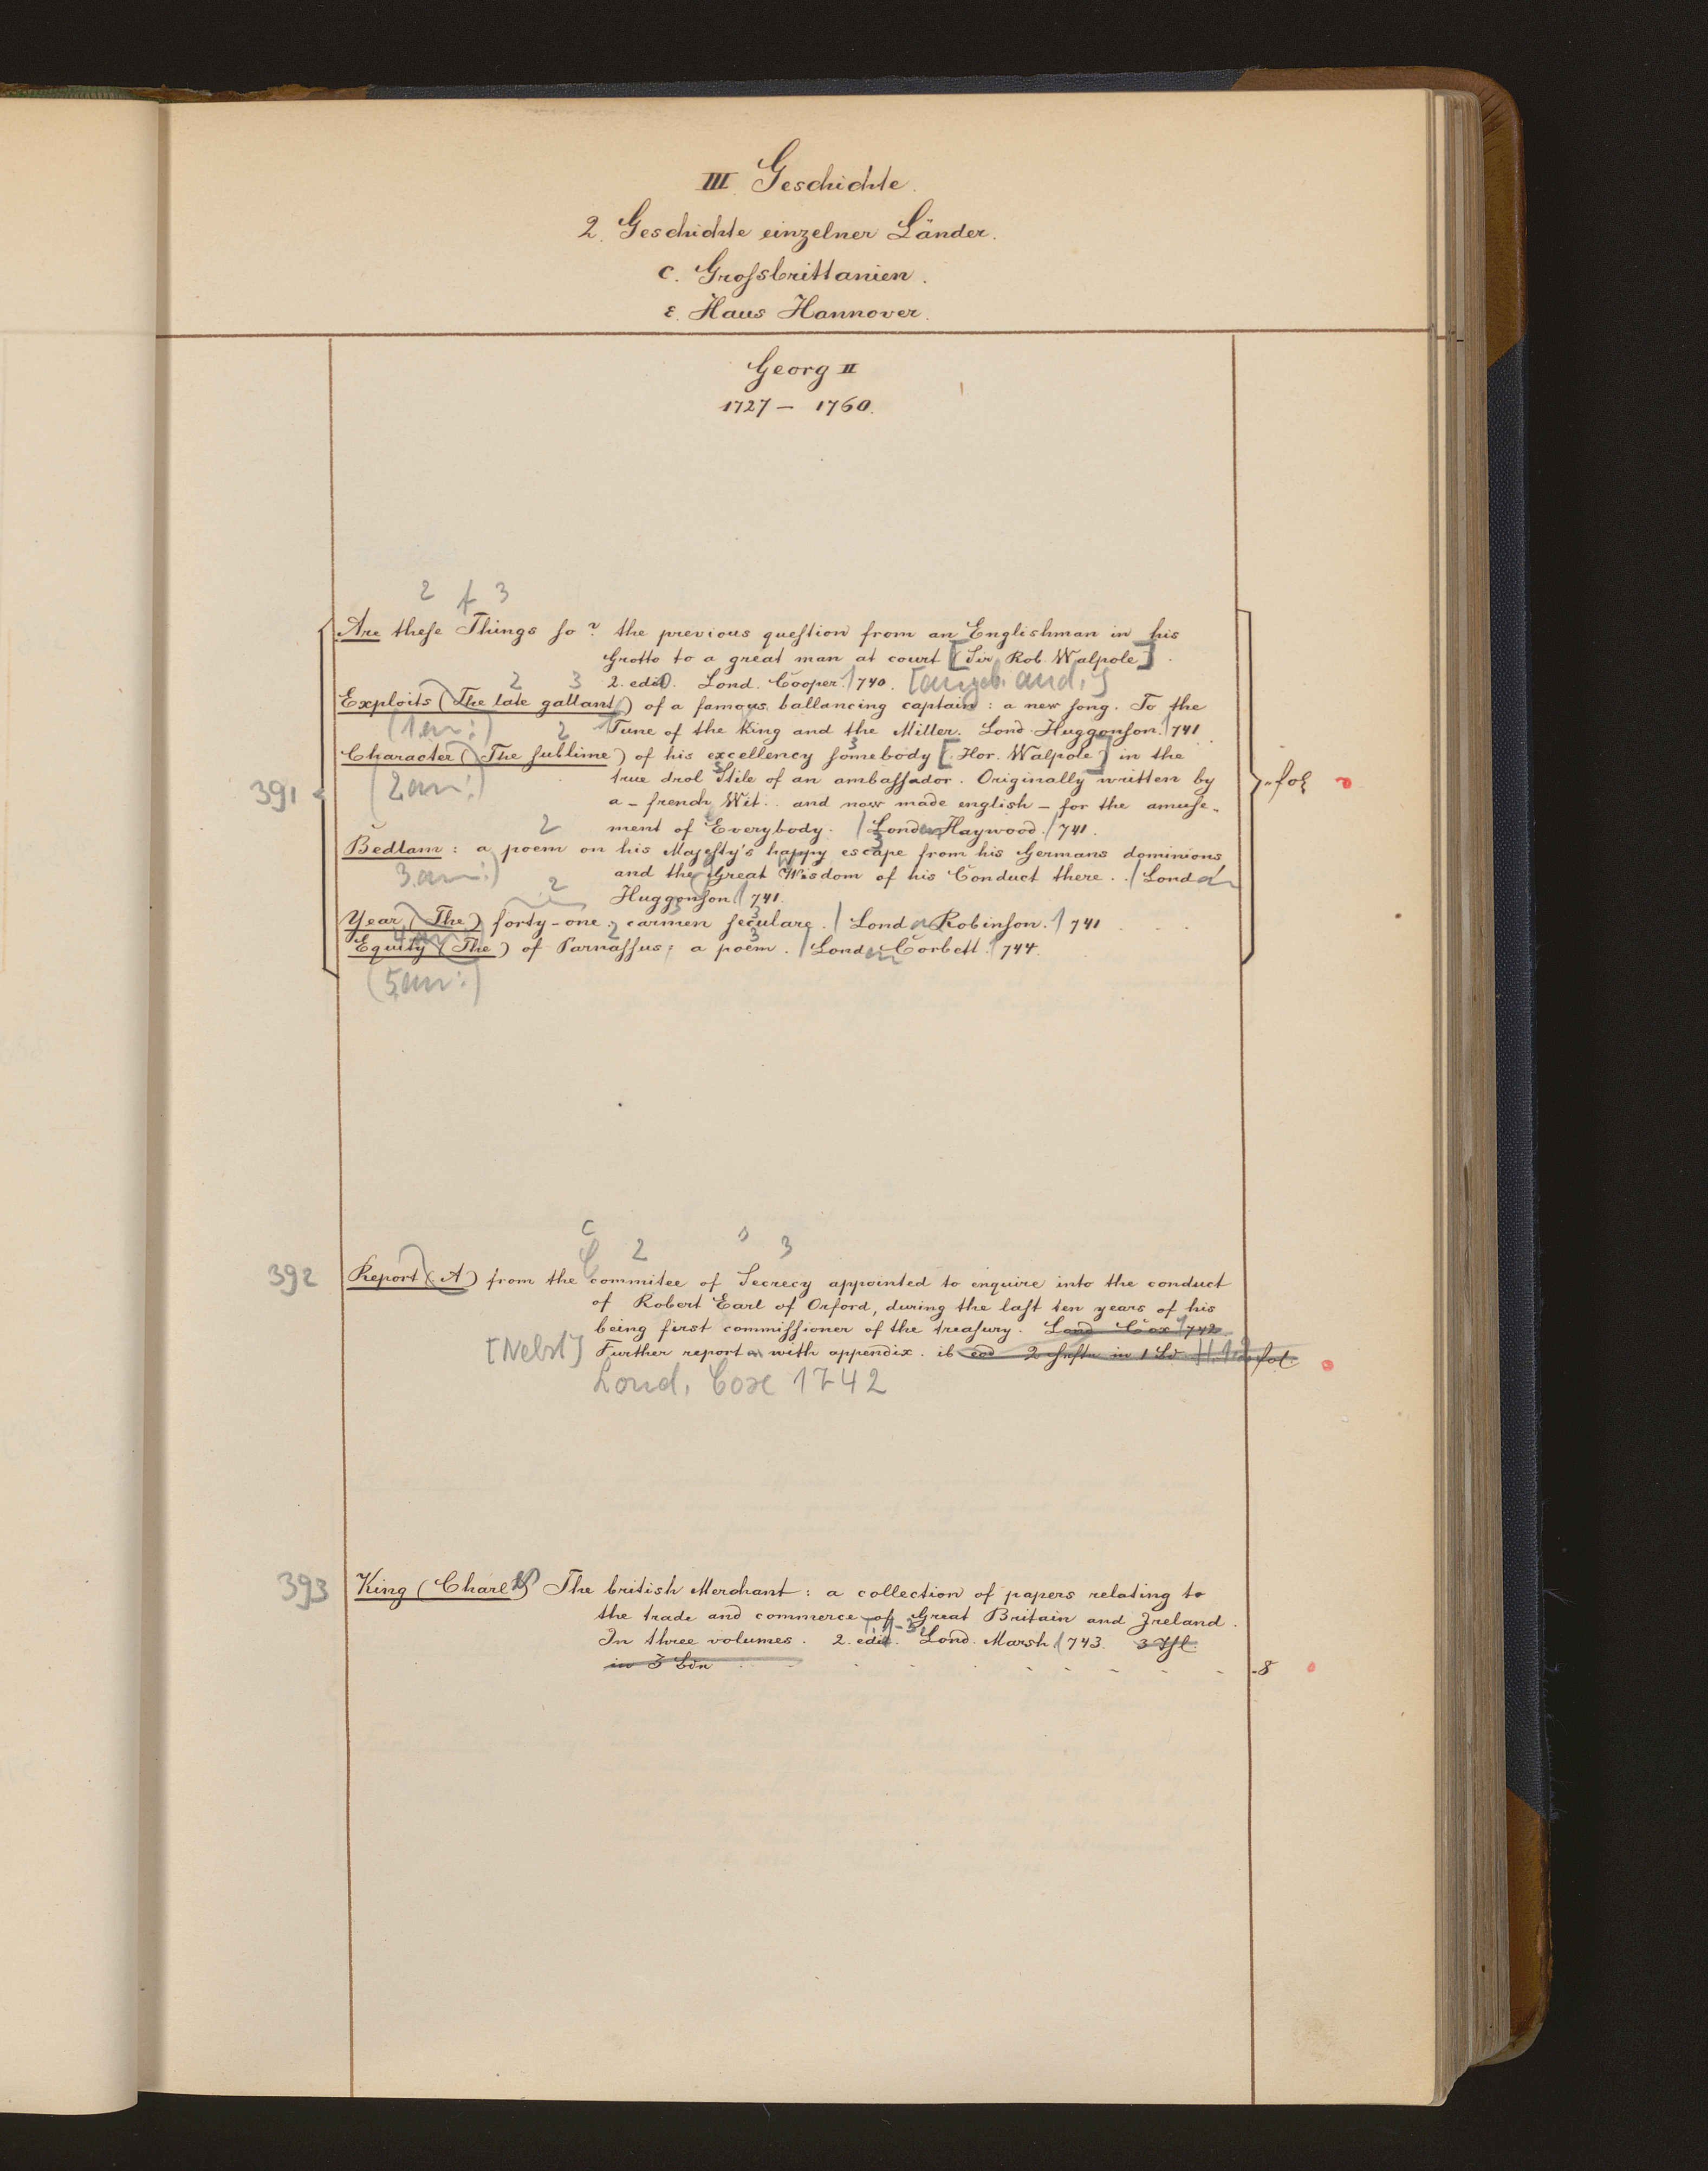 III Geschichte.
2. Geschichte einzelner Länder.
c. Grofsbrittanien.
ε. Haus Hannover.
Georg II
1727 – 1760.
2 3
Are thefe Things fo? the previous queftion from an Englishman in his
Grotto to a great man at court [Sir Rob. Walpole].
2. edit. Lond. Cooper. 1740.
2 3
Exploits (The late gallant) of a famous ballancing captain: a new fong. To the
(1 an:) 2
Tune of the King and the Miller. Lond. Huggonfon. 1741.
Character (The fublime) of his excellency fomebody [Hor. Walpole] in the
(2 an:)
true drol Stile of an ambaffador. Originally written by
391
a – french Wit.. and now made english – for the amufe-
fol
ment of Everybody. Lond. Haywood. 1741.
Bedlam: a poem on his Majefty's happy escape from his Germans dominions
(3 an:)
and the Great Wisdom of his Conduct there. Lond.
Huggonfon. 1741.
Year (The) forty-one, carmen feculare. Lond. Robinfon. 1741
(4 an:)
Equity (The) of Parnaffus; a poem. Lond. Corbett. 1744.
(5 an:)
C 2 s 3
392 Report (A) from the commitee of Secrecy appointed to enquire into the conduct
of Robert Earl of Orford, during the laft ten years of his
being first commiffioner of the treafury. Lond Cox 1742
[Nebst] Further report with appendix. ib eod 2 in 1 Bd fol.
Lond. Cox 1742
393 King (Charles) The british Merchant: a collection of papers relating to
the trade and commerce of Great Britain and Ireland.
1-3
In three volumes. 2. edit. Lond. Marsh 1743. 3
in 3 Bdn 8